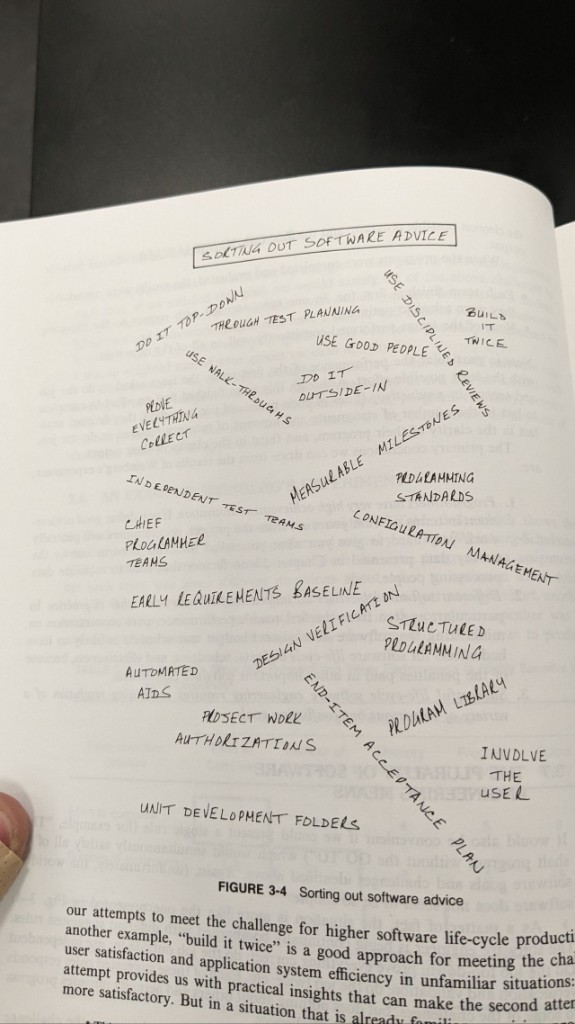 SORTING OUT SOFTWARE ADVICE
DO IT TOP-DOWN
THROUGH TEST PLANNING
USE DISCIPLINED REVIEWS
BUILD
IT
TWICE
USE GOOD PEOPLE
USE WALK-THROUGHS
DO IT
OUTSIDE-IN
PROVE
EVERYTHING
CORRECT
MEASURABLE MILESTONES
INDEPENDENT TEST TEAMS
PROGRAMMING
STANDARDS
CHIEF
PROGRAMMER
TEAMS
CONFIGURATION MANAGEMENT
EARLY REQUIREMENTS BASELINE
DESIGN VERIFICATION
STRUCTURED
PROGRAMMING
AUTOMATED
AIDS
END-ITEM ACCEPTANCE PLAN
PROGRAM LIBRARY
PROJECT WORK
AUTHORIZATIONS
INVOLVE
THE
USER
UNIT DEVELOPMENT FOLDERS
FIGURE 3-4 Sorting out software advice
our attempts to meet the challenge for higher software life-cycle producti
another example, "build it twice" is a good approach for meeting the cha
user satisfaction and application system efficiency in unfamiliar situations:
attempt provides us with practical insights that can make the second atte
more satisfactory. But in a situation that is already